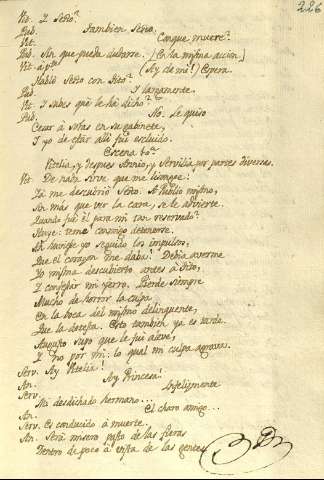 226
Vit. I Sesto?
Pub. Tambien Sesto.
Vit. Conque muere?
Pub. Sin que pueda dudarse. (En la misma accion)
Vit. (Ay de mi!) Espera.
Habló Sesto con Tito?
Pub. I largamente.
Vit. I sabes què le ha dicho?
Pub. No. Le quiso
Cesar à solas en su gabinete,
I yo de estar alli fui escluido.
Escena 10ª
Vitelia, y despues Annio, y Servilia por partes diversas.
Vit. De nada sirve que me lisongee!
Ia me descubrió Sesto: A Publio mismo,
Sin más que ver la cara, se le advierte.
Quando fuè èl para mi tan reservado?
Huye: teme conmigo detenerse.
Ah huviese yo seguido los impulsos,
Que el corazon me daba! Debia averme
Yo misma descubierto antes à Tito,
I confesar mi yerro. Pierde siempre
Mucho de horror la culpa
En la boca del mismo delinquente,
Que la detesta. Esto tambien ya es tarde.
Augusto supo que le fui aleve,
I no por mi: lo qual mi culpa agrava.
Serv. Ay Vitelia!
An. Ay Princesa!
Serv. Infelizmente
Mi desdichado hermano...
An. El charo amigo...
Serv. Es conducido à muerte.
An. Serà misero pasto de las fieras
Dentro de poco à vista de las gentes